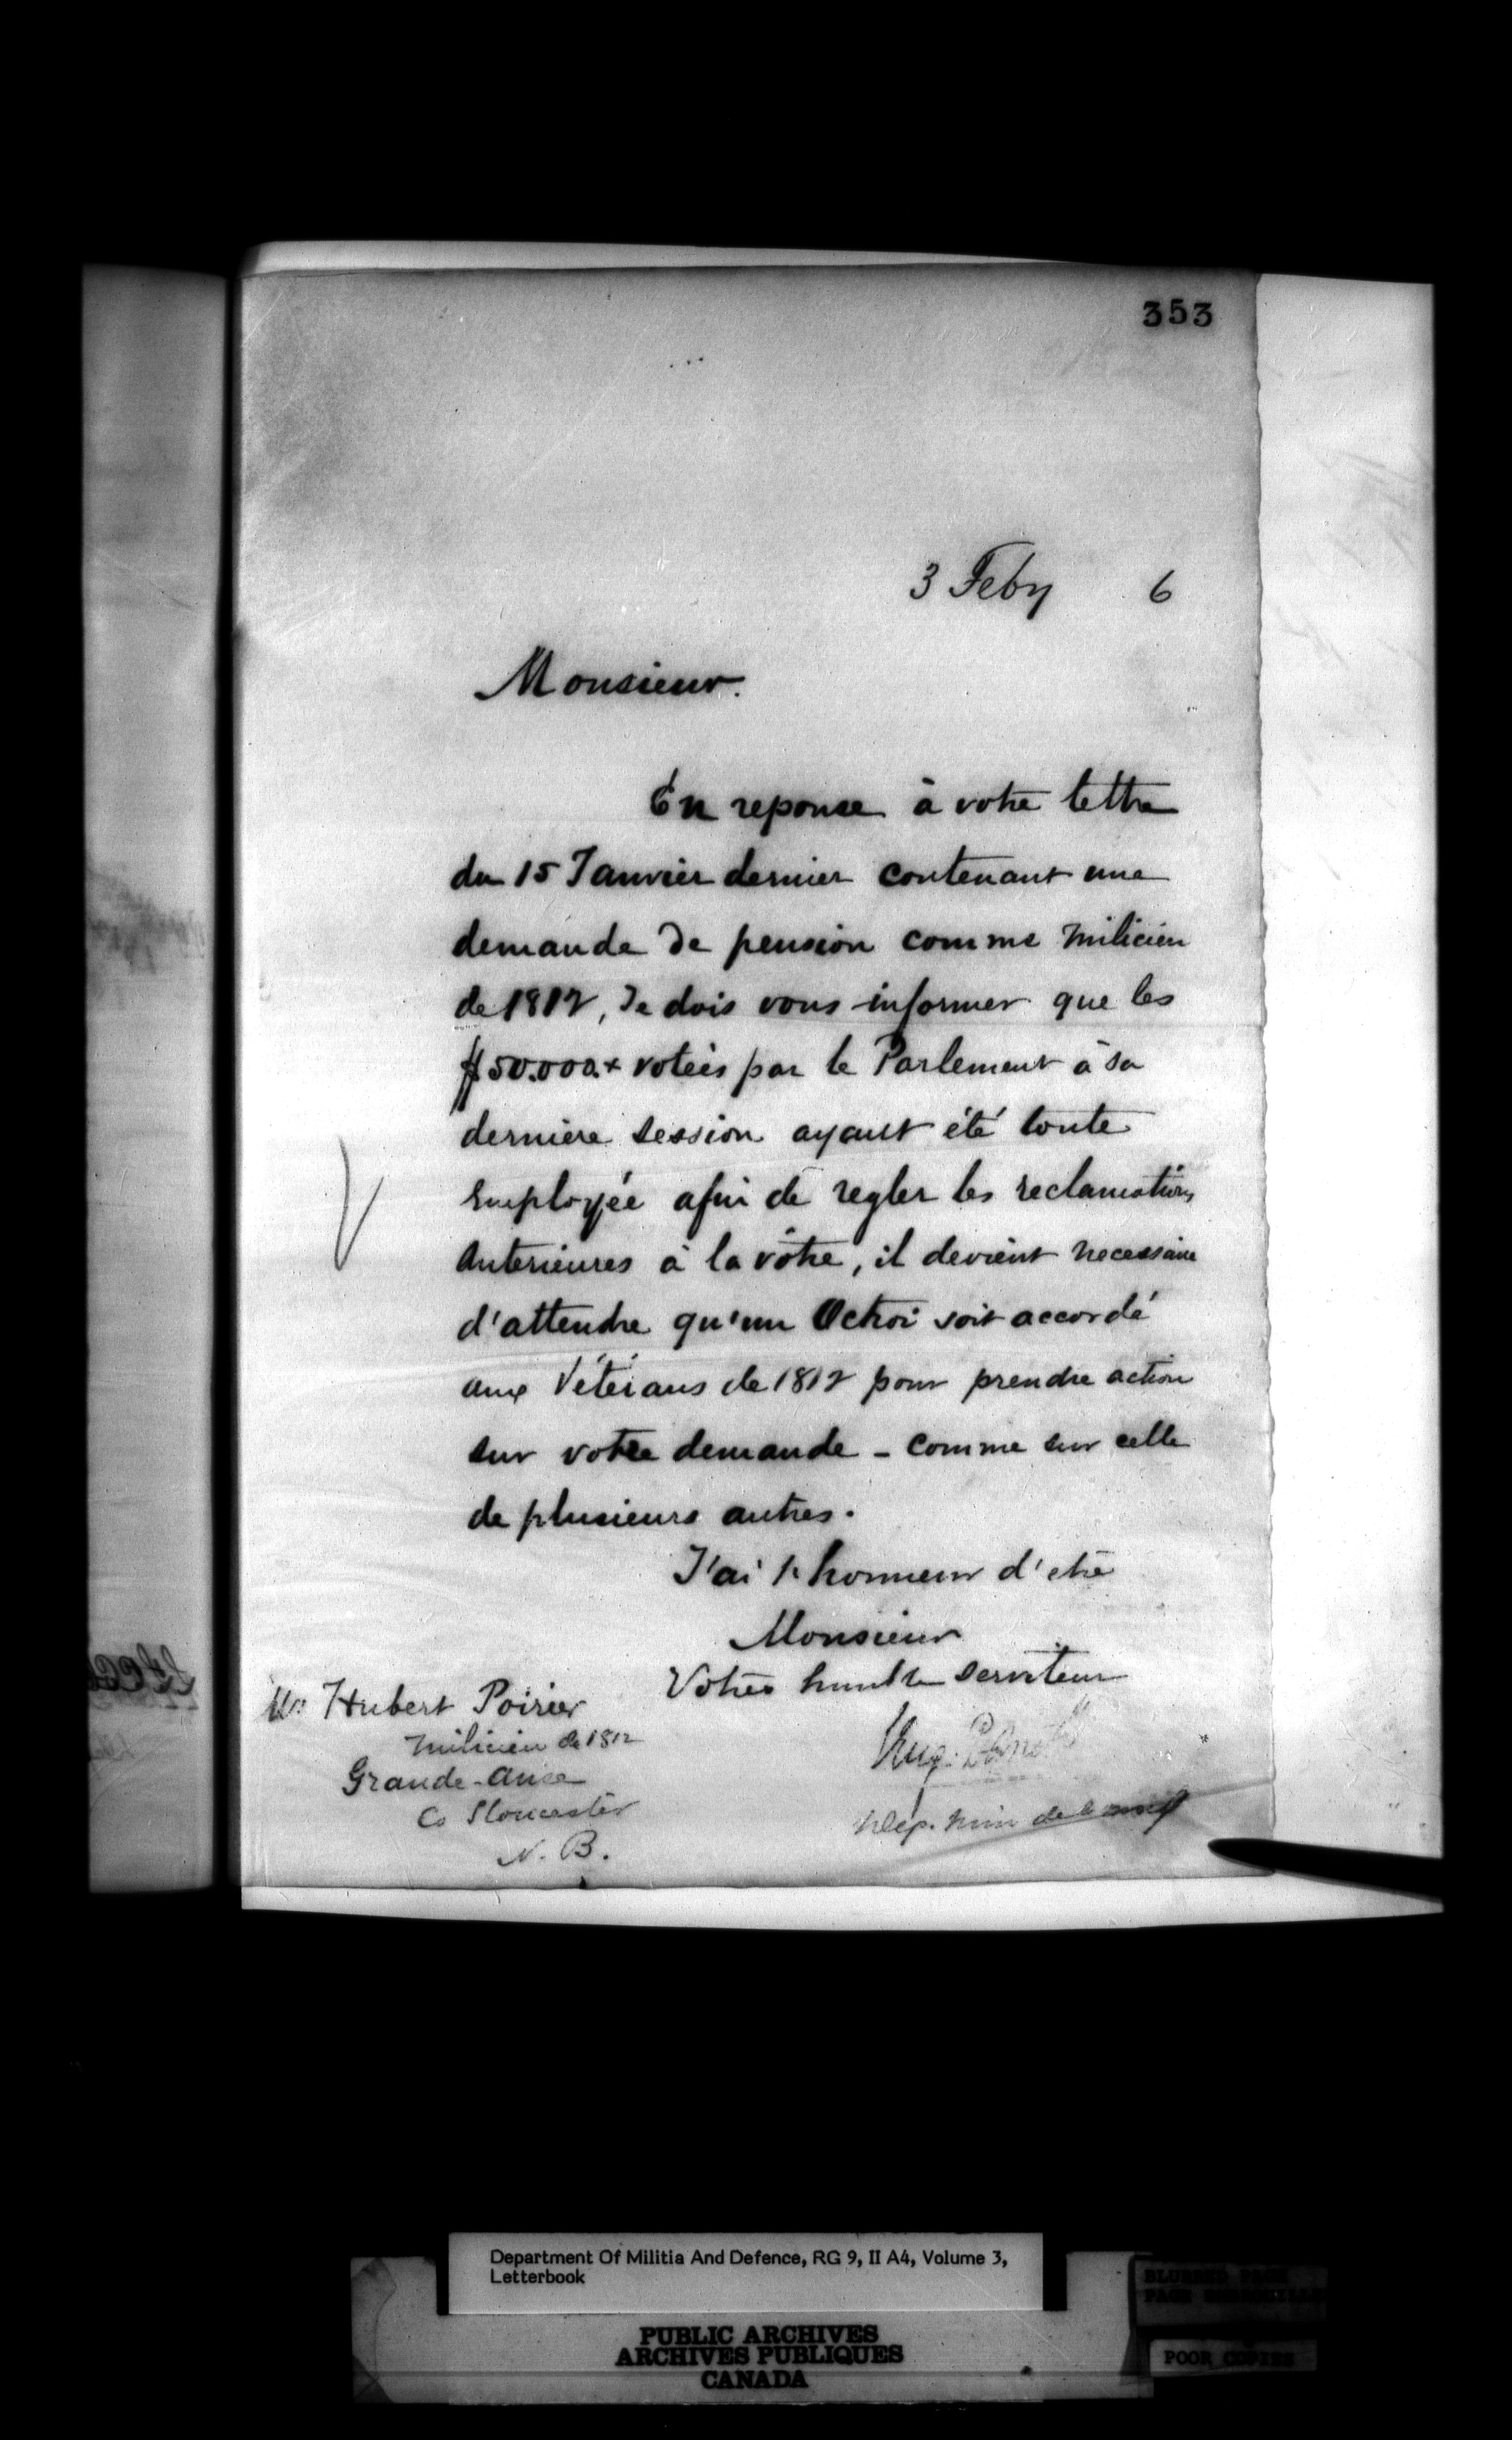 353
3 Feby 6
Monsieur.
En reponse à votre lettre
du 15 Janvier dernier contenant une
demande de pension comme milicien
de 1812, Je dois vous informer que les
$50.000.x votées par le Parlement à sa
derniere session ayant été toute
Employée afin de regler les reclamations
anterieures à la vôtre, il devient necessaire
d'attendre qu'un Octroi soit accordé
aux Vétérans de 1812 pour prendre action
sur votre demande - comme sur celle
de plusieurs autres.
J'ai l'honneur d'etre
Monsieur
Votre humble Serviteur
Mr. Hubert Poirier
Milicien de 1812
Grande-Anse
Co Gloucester
N. B.
Dep. Min de la
Department Of Militia And Defence, RG 9, II A4, Volume 3,
Letterbook
PUBLIC ARCHIVES
ARCHIVES PUBLIQUES
CANADA
BLURRED PAGE
POOR COPIES